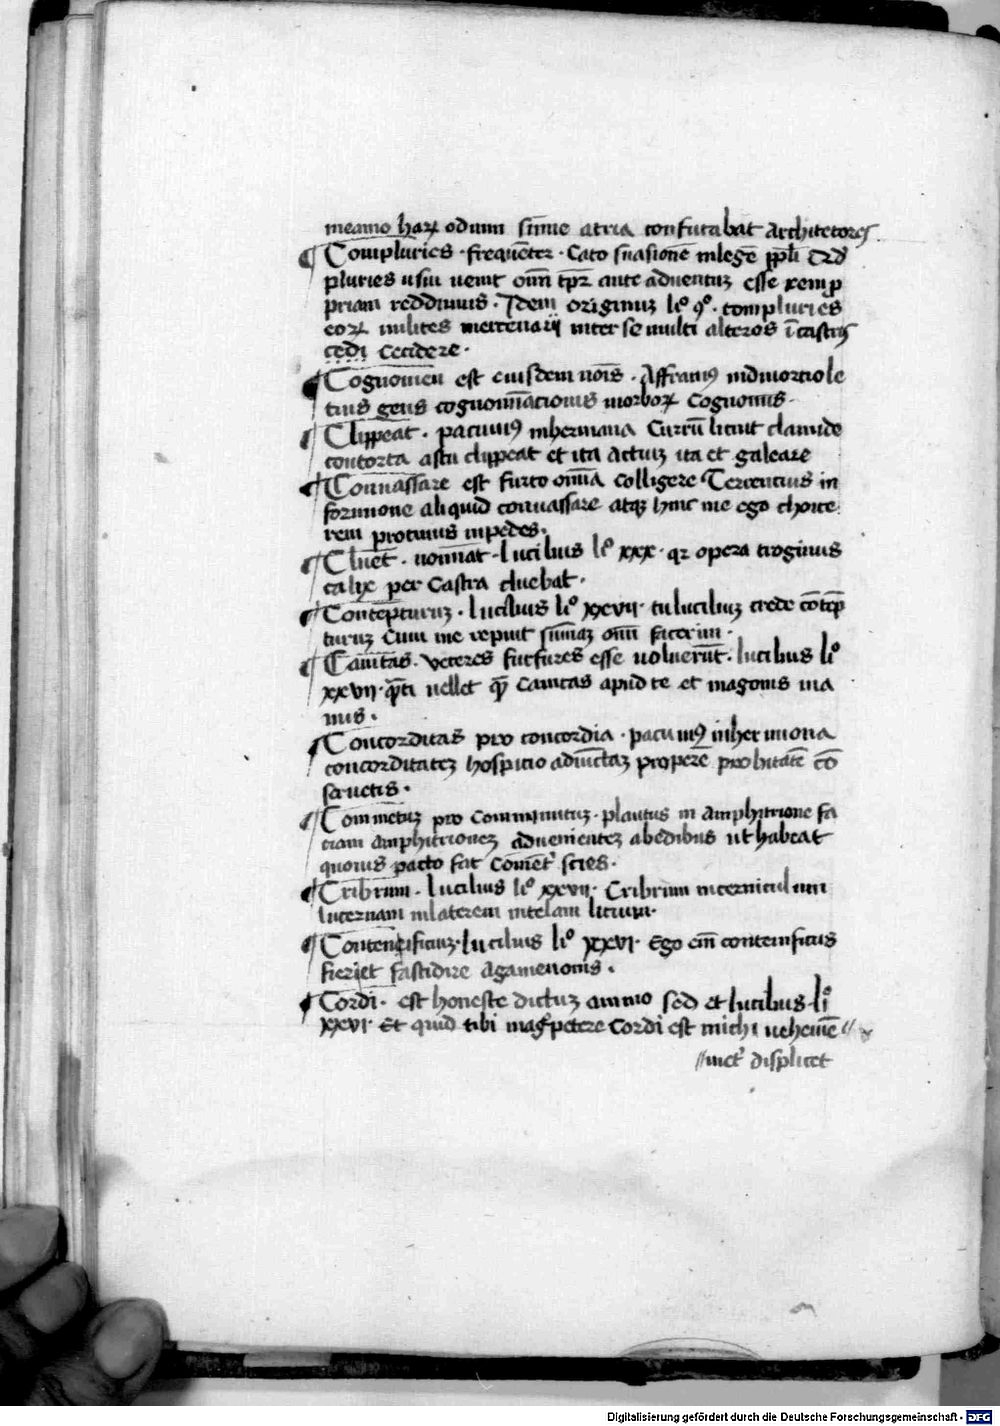 meamo haꝝ odium sinue atria confutabat architetores
¶ Compluries · frequēter · Cato suasionē inlegē pp̄li Cō
pluries usui uenit om̄ tp̄ꝫ ante aduentuꝫ esse rem p
priam reddimus · Idem originuꝫ liº qº · compluries
eoꝝ milites mercenarii inter se multi alteros ī castris
cedi cecidere ·
¶ Cognomen est eiusdem noīs · Affraniꝰ indiuortio le
tius gens cognoīnacionis morboꝝ cognomis ·
¶ Clippeat · pacuuiꝰ inhermana Currū licuit clamide
contorta astu clippeat et ita actuiꝫ ita et galeare
¶ Conuassare est furto om̄ia colligere Terrentius in
formione aliquid conuassare atqꝫ hinc me ego choice
rem protinus inpedes ·
¶ Cluet · nom̄nat · lucilius liº xxx · qꝛ opera troginus
calix per Castra cluebat ·
¶ Contēpturuꝫ · lucilius liº xxvii · tu luciliuꝫ crede cōtēp
turuꝫ Cum me repuit summaꝫ om̄ fecerim ·
¶ Cauitas · veteres furfures esse uoluerūt · lucilius liº
xxvii · quāti uellet quā cauitas apud te et magonis ma
nus ·
¶ Concorditas pro concordia · pacuuiꝰ inhermiona
concorditateꝫ hospitio adiuctaꝫ properē probitatē cō
seruetis ·
¶ Commetuꝫ pro commimituꝫ · plautus in amphitrione fa
ciam amphitrioneꝫ aduenienteꝫ abedibus ut habeat
quouis pacto fat comēt scies ·
¶ Cribrum · lucilius liº xxvii · Cribrum incerniculum
lucernam inlaterem intelam licium ·
¶ Contemptificuꝫ · lucilius liº xxvi · Ego em̄ contemficus
fieri et fastidire agamenonis ·
¶ Cordi · est honeste dictuꝫ animo sed et lucilius liº
xxvi · Et quid tibi mag̃ petere cordi est michi uehemē //
// inet̉ displicet
Digitalisierung gefördert durch die Deutsche Forschungsgemeinschaft - DFG